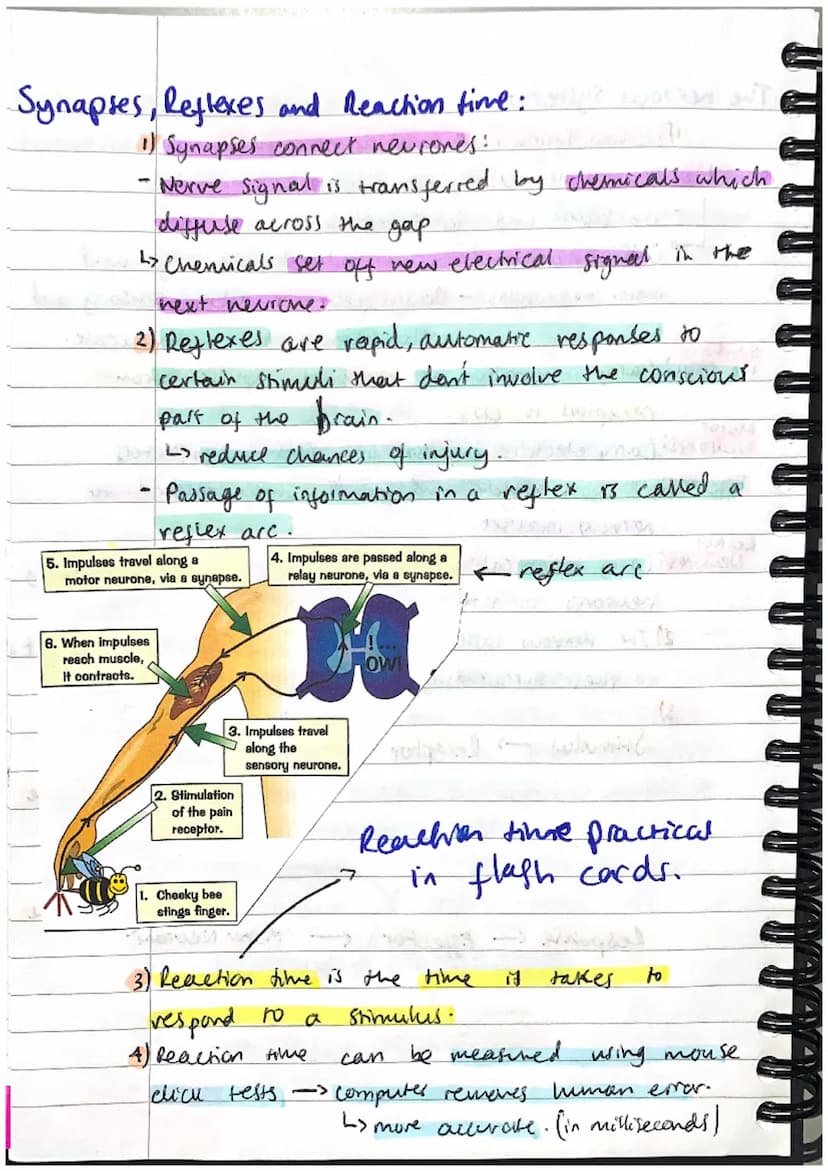 Synapses, Reflexes and Reaction time:
1) Synapses connect neurones:
- Nerve signal is transferred by chemicals which
diffuse across the gap
↳ Chemicals set off new electrical signal in the
next neurone.
2) Reflexes are rapid, automatic responses to
certain stimuli that don't involve the conscious
part of the brain.
↳ reduce chances of injury.
- Passage of information in a reflex is called a
reflex arc.
5. Impulses travel along a
motor neurone, via a synapse.
4. Impulses are passed along a
relay neurone, via a synapse.
← reflex arc
!...
OW!
6. When impulses
reach muscle,
it contracts.
3. Impulses travel
along the
sensory neurone.
2. Stimulation
of the pain
receptor.
1. Cheeky bee
stings finger.
Reaction time practical
in flash cards.
3) Reaction time is the time it takes to
respond to a stimulus.
4) Reaction time can be measured using mouse
click tests → computer removes human error.
↳ more accurate. (in milliseconds)